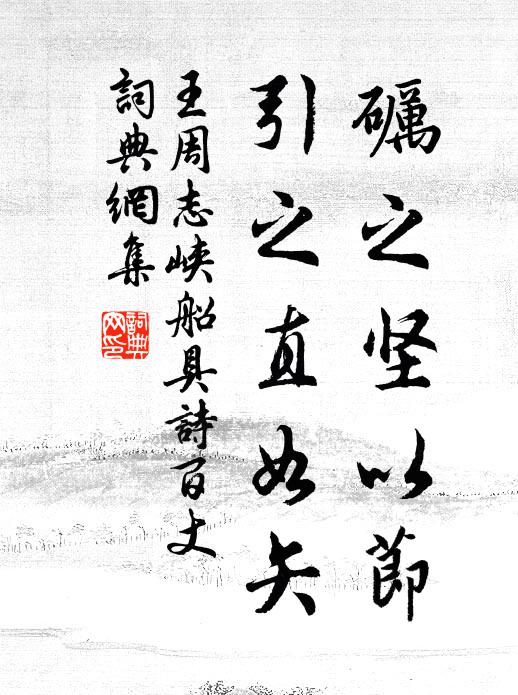 礪之坚以節
引之直如矢
王周志峡船具詩百丈
詞典網集
詞典網印